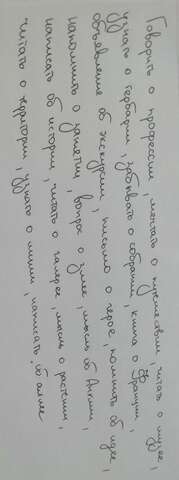 Говорить о профессии, мечтать о путешествии, читать о музее,
узнать о гербарии, забывать о собрании, книга о Франции,
объявление об экскурсии, письмо о герое, помнить об идее,
напомнить о занятии, вопрос о змее, мысль об Англии,
написать об истории, читать о галерее, мысль о растении,
читать о территории, узнать о линии, написать об аллее